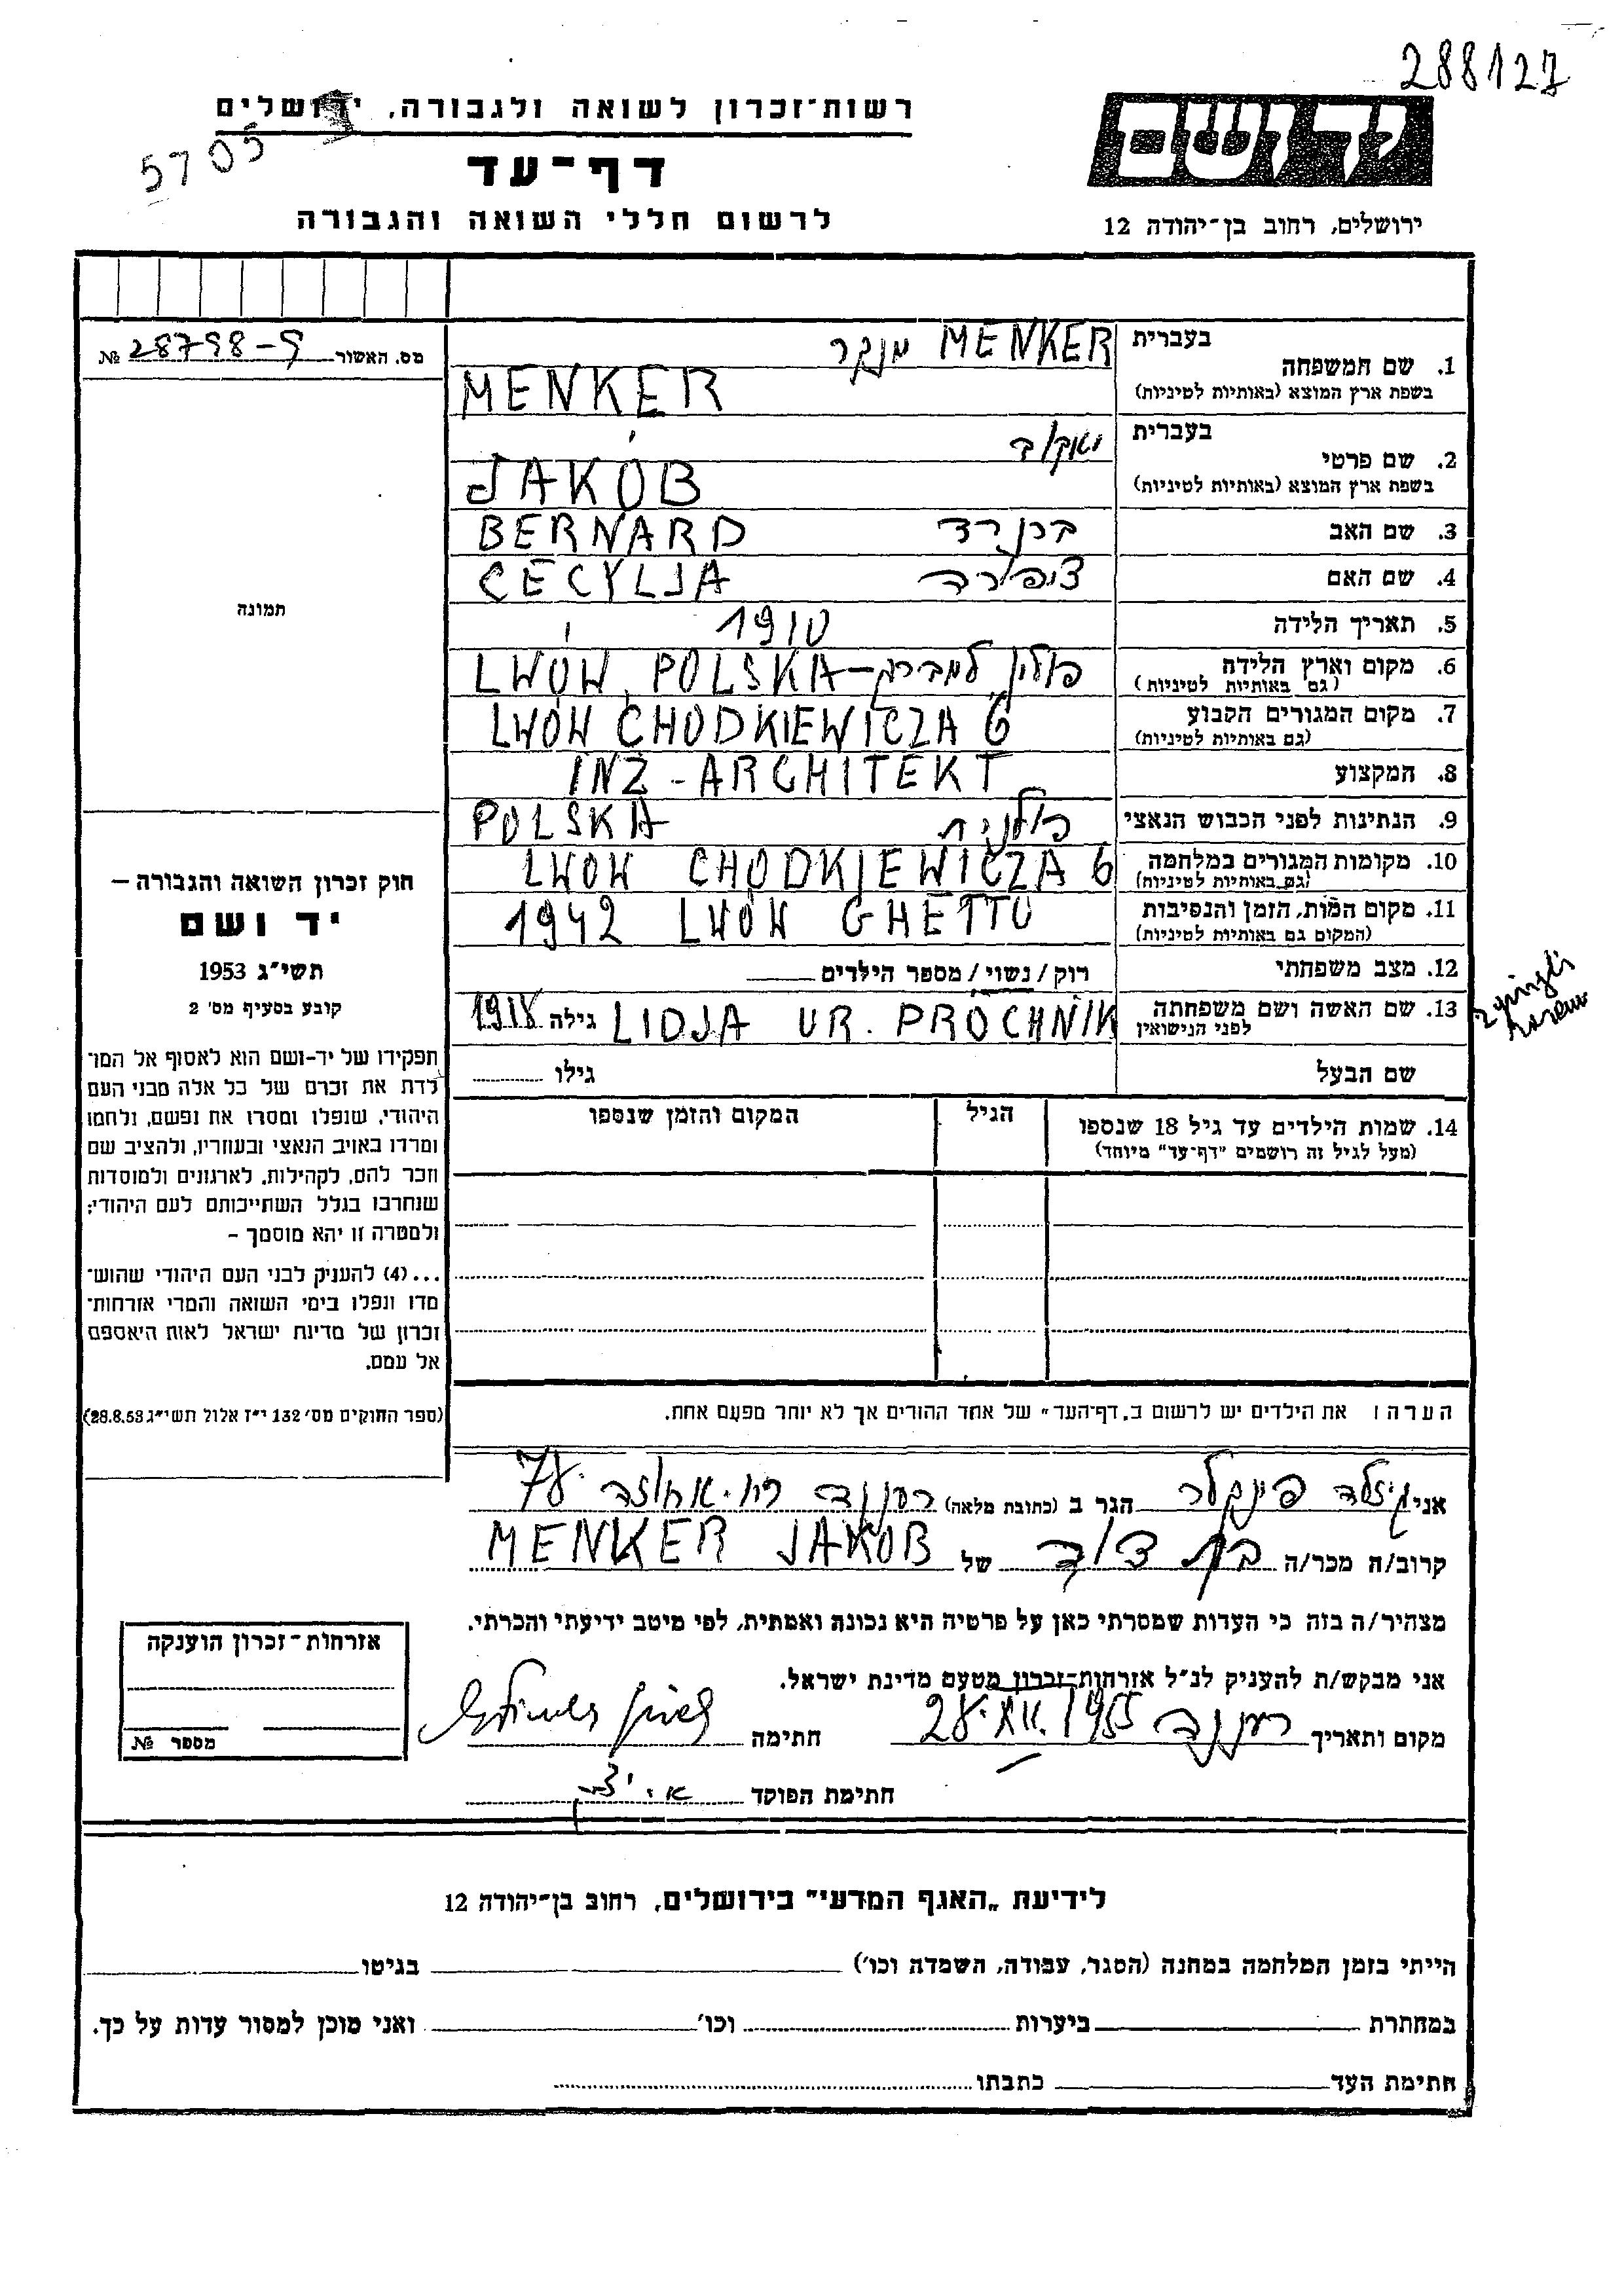 288127
יד ושם
ירושלים, רחוב בן־יהודה 12
רשות־זכרון לשואה ולגבורה, ירושלים
5705
דף־עד
לרשום חללי השואה והגבורה
מס. האשור 28798-9 №
תמונה
חוק זכרון השואה והגבורה –
יד ושם
תשי״ג 1953
קובע בסעיף מס׳ 2
תפקידו של יד-ושם הוא לאסוף אל המו־
לדת את זכרם של כל אלה מבני העם
היהודי, שנפלו ומסרו את נפשם, נלחמו
ומרדו באויב הנאצי ובעוזריו, ולהציב שם
וזכר להם, לקהילות, לארגונים ולמוסדות
שנחרבו בגלל השתייכותם לעם היהודי;
ולמטרה זו יהא מוסמך –
...(4) להעניק לבני העם היהודי שהוש־
מדו ונפלו בימי השואה והמרי אזרחות־
זכרון של מדינת ישראל לאות היאספם
אל עמם.
(ספר החוקים מס׳ 132 י״ז אלול תשי״ג 28.8.53)
בעברית MENKER מנקר
1. שם המשפחה
בשפת ארץ המוצא (באותיות לטיניות) MENKER
בעברית יאקוב
2. שם פרטי
בשפת ארץ המוצא (באותיות לטיניות) JAKÓB
3. שם האב ברנרד BERNARD
4. שם האם ציפורה CECYLJA
5. תאריך הלידה 1910
6. מקום וארץ הלידה פולין למברג – LWÓW, POLSKA
(גם באותיות לטיניות)
7. מקום המגורים הקבוע LWÓW CHODKIEWICZA 6
(גם באותיות לטיניות)
8. המקצוע INŻ - ARCHITEKT
9. הנתינות לפני הכבוש הנאצי פולנית POLSKA
10. מקומות המגורים במלחמה LWOW CHODKIEWICZA 6
(גם באותיות לטיניות)
11. מקום המות, הזמן והנסיבות 1942 LWÓW GHETTO
(המקום גם באותיות לטיניות)
12. מצב משפחתי רוק / נשוי / מספר הילדים
13. שם האשה ושם משפחתה LIDJA UR. PROCHNIK גילה 1918
לפני הנישואין
שם הבעל גילו
14. שמות הילדים עד גיל 18 שנספו הגיל המקום והזמן שנספו
(מעל לגיל זה רושמים "דף־עד" מיוחד)
הערה: את הילדים יש לרשום ב„דף־העד" של אחד ההורים אך לא יותר מפעם אחת.
אני גיזלה פינקלר הגר ב (כתובת מלאה) רעננה רח. אחוזה 78
קרוב/ה מכר/ה בת דודה של MENKER JAKOB
מצהיר/ה בזה כי העדות שמסרתי כאן על פרטיה היא נכונה ואמתית, לפי מיטב ידיעתי והכרתי.
אני מבקש/ת להעניק לנ״ל אזרחות־זכרון מטעם מדינת ישראל.
מקום ותאריך רעננה 28.XII.1955 חתימה
חתימת הפוקד
אזרחות־זכרון הוענקה
מספר №
לידיעת „האגף המדעי" בירושלים, רחוב בן־יהודה 12
הייתי בזמן המלחמה במחנה (הסגר, עבודה, השמדה וכו׳) בגיטו
במחתרת ביערות וכו׳ ואני מוכן למסור עדות על כך.
חתימת העד כתבתו